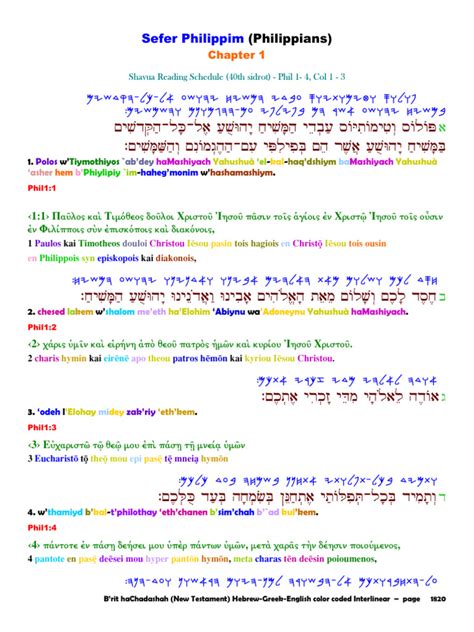 Sefer Philippim (Philippians)
Chapter 1
Shavua Reading Schedule (40th sidrot) - Phil 1- 4, Col 1 - 3
א פּוֹלוֹס וְטִימוֹתִיּוֹס עַבְדֵי הַמָּשִׁיחַ יָהוּשֻׁעַ אֶל־כָּל־הַקְּדֹשִׁים
בַּמָּשִׁיחַ יָהוּשֻׁעַ אֲשֶׁר הֵם בְּפִילִפִּי עִם־הַהֶגְמוֹנִם וְהַשַּׁמָּשִׁים׃
1. Polos w'Tiymothiyos `ab'dey haMashiyach Yahushuà 'el-kal-haq'dshiym baMashiyach Yahushuà
'asher hem b'Phiylipiy `im-haheg'monim w'hashamashiym.
Phil1:1
‹1:1› Παῦλος καὶ Τιμόθεος δοῦλοι Χριστοῦ Ἰησοῦ πᾶσιν τοῖς ἁγίοις ἐν Χριστῷ Ἰησοῦ τοῖς οὖσιν
ἐν Φιλίπποις σὺν ἐπισκόποις καὶ διακόνοις,
1 Paulos kai Timotheos douloi Christou Iēsou pasin tois hagiois en Christō Iēsou tois ousin
en Philippois syn episkopois kai diakonois,
ב חֶסֶד לָכֶם וְשָׁלוֹם מֵאֵת הָאֱלֹהִים אָבִינוּ וַאֲדֹנֵינוּ יָהוּשֻׁעַ הַמָּשִׁיחַ׃
2. chesed lakem w'shalom me'eth ha'Elohim 'Abiynu wa'Adoneynu Yahushuà haMashiyach.
Phil1:2
‹2› χάρις ὑμῖν καὶ εἰρήνη ἀπὸ θεοῦ πατρὸς ἡμῶν καὶ κυρίου Ἰησοῦ Χριστοῦ.
2 charis hymin kai eirēnē apo theou patros hēmōn kai kyriou Iēsou Christou.
ג אוֹדֶה לֵאלֹהָי מִדֵּי זָכְרִי אֶתְכֶם׃
3. 'odeh l'Elohay midey zak'riy 'eth'kem.
Phil1:3
‹3› Εὐχαριστῶ τῷ θεῷ μου ἐπὶ πάσῃ τῇ μνείᾳ ὑμῶν
3 Eucharistō tō theō mou epi pasē tē mneia hymōn
ד וְתָמִיד בְּכָל־תְּפִלּוֹתַי אֶתְחַנֵּן בְּשִׂמְחָה בְּעַד כֻּלְּכֶם׃
4. w'thamiyd b'kal-t'philothay 'eth'chanen b'sim'chah b'`ad kul'kem.
Phil1:4
‹4› πάντοτε ἐν πάσῃ δεήσει μου ὑπὲρ πάντων ὑμῶν, μετὰ χαρᾶς τὴν δέησιν ποιούμενος,
4 pantote en pasē deēsei mou hyper pantōn hymōn, meta charas tēn deēsin poioumenos,
B'rit haChadashah (New Testament) Hebrew-Greek-English color coded Interlinear – page 1820